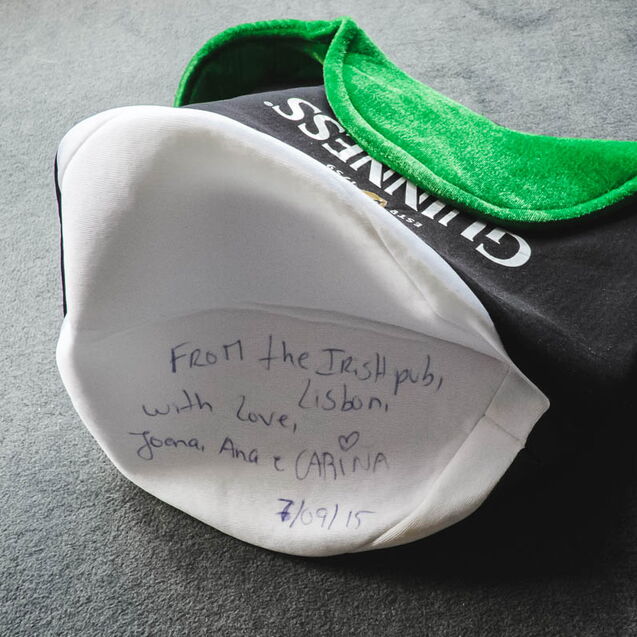 GUINNESS®
ESTD 1759
FROM the IRISH pub,
Lisbon,
with Love,
Joana, Ana e CARINA
7/09/15